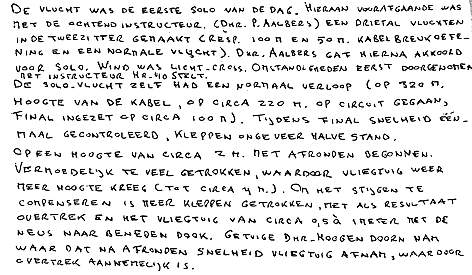 DE VLUCHT WAS DE EERSTE SOLO VAN DE DAG. HIERAAN VOORAFGAANDE WAS
MET DE OCHTENDINSTRUCTEUR. (DHR. P. AALBERS) EEN DRIETAL VLUCHTEN
IN DE TWEEZITTER GEMAAKT (RESP. 100 M EN 50 M. KABELBREUKOEFE-
NING EN EEN NORMALE VLUCHT). DHR. AALBERS GAF HIERNA AKKOORD
VOOR SOLO. WIND WAS LICHT-CROSS. OMSTANDIGHEDEN EERST DOORGENOMEN
MET INSTRUCTEUR
DE SOLO-VLUCHT ZELF HAD EEN NORMAAL VERLOOP (OP 320 M.
HOOGTE VAN DE KABEL, OP CIRCA 220 M. OP CIRCUIT GEGAAN,
FINAL INGEZET OP CIRCA 100 M). TIJDENS FINAL SNELHEID ÉÉN-
MAAL GECONTROLEERD, KLEPPEN ONGEVEER HALVE STAND.
OP EEN HOOGTE VAN CIRCA 2 M. MET AFRONDEN BEGONNEN.
VERMOEDELIJK TE VEEL GETROKKEN, WAARDOOR VLIEGTUIG WEER
MEER HOOGTE KREEG (TOT CIRCA 4 M.). OM HET STIJGEN TE
COMPENSEREN IS MEER KLEPPEN GETROKKEN, MET ALS RESULTAAT
OVERTREK EN HET VLIEGTUIG VAN CIRCA 0,5 à 1 METER MET DE
NEUS NAAR BENEDEN DOOK. GETUIGE DHR. HOOGENDOORN NAM
WAAR DAT NA AFRONDEN SNELHEID VLIEGTUIG AFNAM, WAARDOOR
OVERTREK AANNEMELIJK IS.